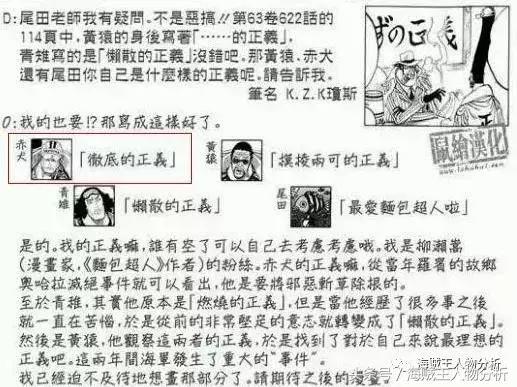 D:尾田老師我有疑問。不是惡搞!!第63卷622話的
114頁中,黃猿的身後寫著「……的正義」。
青雉寫的是「懶散的正義」沒錯吧。那黃猿、赤犬
還有尾田你自己是什麼樣的正義呢。請告訴我。
筆名 K.Z.K瓊斯
ずの正義
鼠繪漢化
O:我的也要!?那寫成這樣好了。
赤犬
「徹底的正義」
黃猿
「摸棱兩可的正義」
青雉
「懶散的正義」
尾田
「最愛麵包超人啦」
是的。我的正義嘛,誰有空了可以自己去考慮考慮哦。我是柳瀨嵩
(漫畫家,《麵包超人》作者)的粉絲。赤犬的正義,從當年羅賓的故鄉
奧哈拉滅絕事件就可以看出,他是要將邪惡斬草除根的。
至於青雉,其實他原本是「燃燒的正義」,但是當他經歷了很多事之後
就一直在苦惱,於是從前的非常堅定的意志就轉變成了「懶散的正義」。
然後是黃猿,他觀察這兩者的正義,於是找到了對於自己來說最理想的
正義吧。這兩年間海軍發生了重大的“事件”。
我已經迫不及待地想畫那部分了。請期待之後的漫畫。
海賊王人物分析